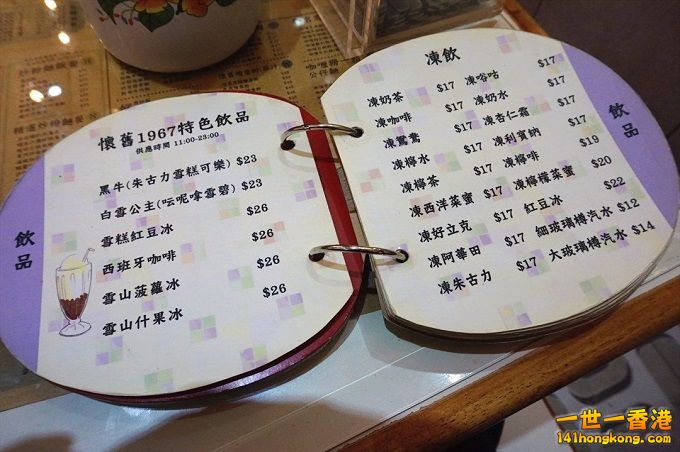 懷舊1967特色飲品
供應時間 11:00-23:00
黑牛(朱古力雪糕可樂) $23
白雪公主(呍呢拿雪碧) $23
雪糕紅豆冰 $26
西班牙咖啡 $26
雪山菠蘿冰 $26
雪山什果冰 $26
飲品
凍飲
凍奶茶 $17 凍唂咕 $17
凍咖啡 $17 凍奶水 $17
凍鴛鴦 $17 凍杏仁霜 $17
凍檸水 $17 凍利賓納 $17
凍檸茶 $17 凍檸啡 $19
凍西洋菜蜜 $17 凍檸檬菜蜜 $20
凍好立克 $17 紅豆冰 $22
凍阿華田 $17 細玻璃樽汽水 $12
凍朱古力 $17 大玻璃樽汽水 $14
飲品
一世一香港
141hongkong.com